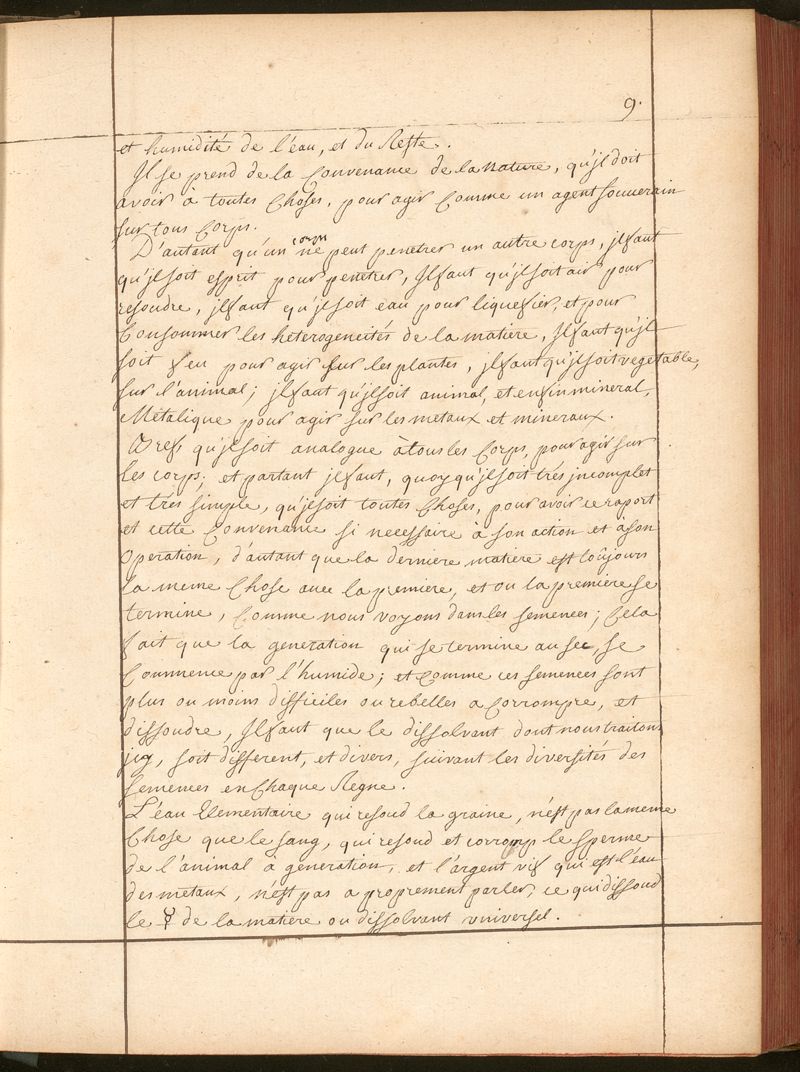 9.
et humidité de l'éau, et du Reste.
Jl se prend de la Convenance de la Nature, qu'jl doit
avoir à toutes Choses, pour agir Comme un agent souuerain
sur tous Corps.
corps
D'autant qu'un ne peut penetrer un autre corps, jl faut
qu'jl soit esprit pour penetrer, Jl faut qu'jl soit air pour
resoudre, jl faut qu'jl soit eau pour liquefier, et pour
Consommer les héterogeneités de la matiere, Jl faut qu'jl
soit feu pour agir sur les plantes, jl faut qu'jl soit vegetable,
sur l'animal; jl faut qu'jl soit animal, et enfin mineral,
Métalique pour agir sur les metaux et mineraux.
Bref, qu'jl soit analogue à tous les Corps, pour agir sur
les corps; et partant jl faut, quoy qu'jl soit trés jncomplet
et trés simple, qu'jl soit toutes Choses, pour avoir ce raport
et cette Convenance si necessaire à son action et à son
Operation, d'autant que la derniere matiere est toûjours
la meme Chose auec la premiere, et ou la premiere se
termine, Comme nous voyons dans les semences; Cela
fait que la generation qui se termine au sec, se
Commence par l'humide; et Comme ces semences sont
plus ou moins difficiles ou rebelles a Corrompre, et
dissoudre, Jl faut que le dissolvant dont nous traitons
jcy, soit different, et divers, suivant les diversités des
semences en Chaque Regne.
L'éau Elementaire qui resoud la graine, n'est pas la meme
Chose que le sang, qui resoud et corromp le sperme
de l'animal à generation, et l'argent vif qui est l'eau
des metaux, n'est pas a proprement parler, ce qui dissoud
le ☿ de la matiere ou dissolvant vniversel.